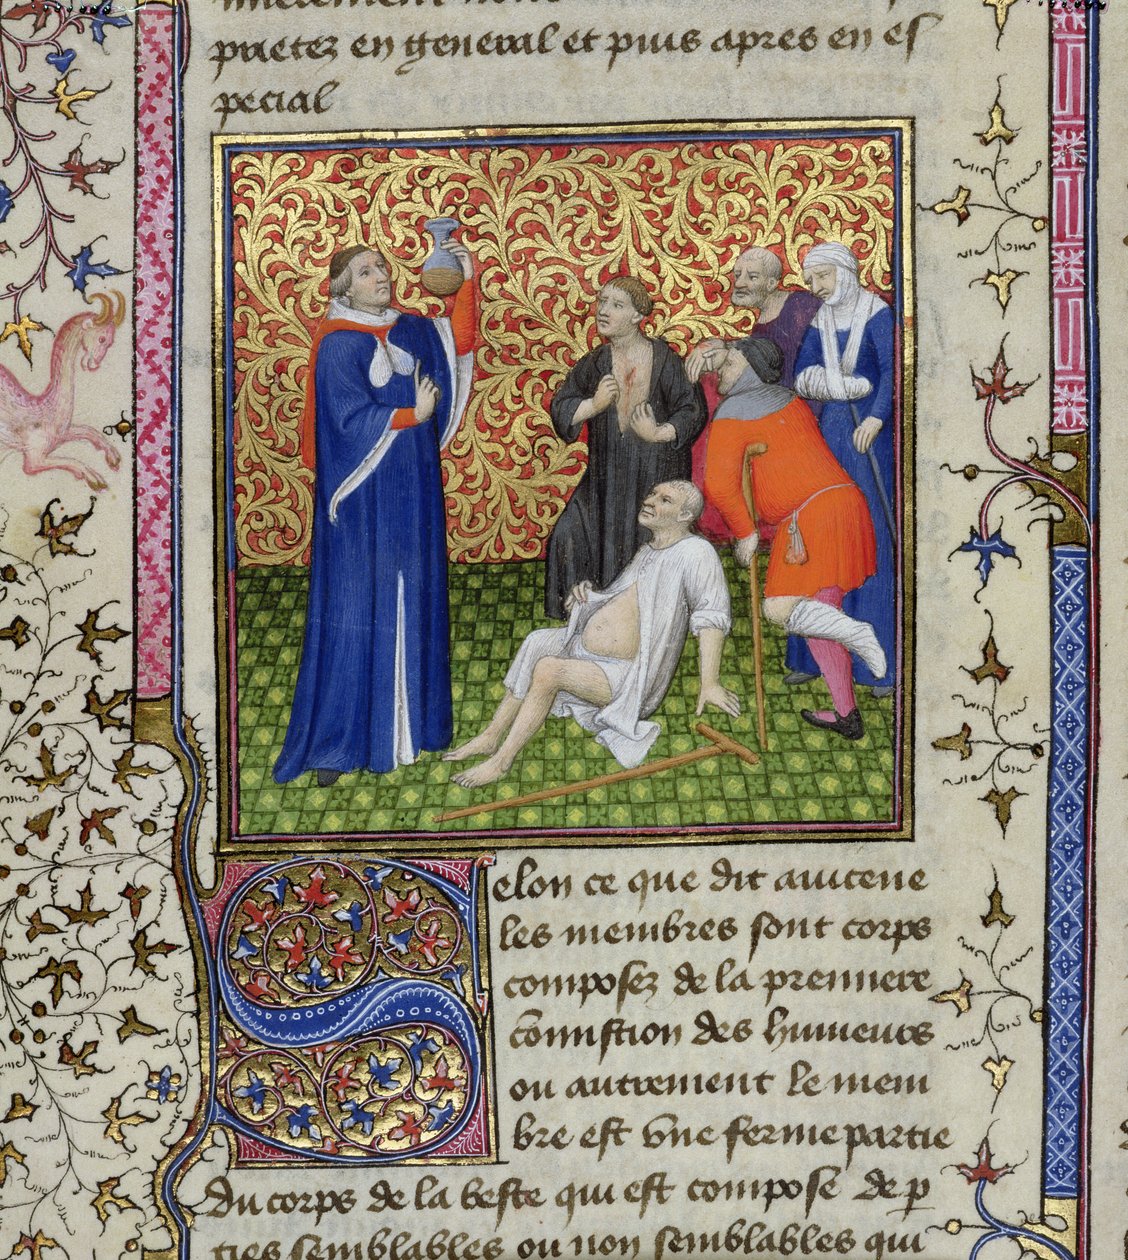 praetez en general et puis apres en es
pecial
Selon ce que dit auicene
les membres sont corps
composez de la premiere
cōmistion des humeurs
ou autrement le mem
bre est vne ferme partie
du corps de la beste qui est compose de p
ties semblables ou non semblables qui